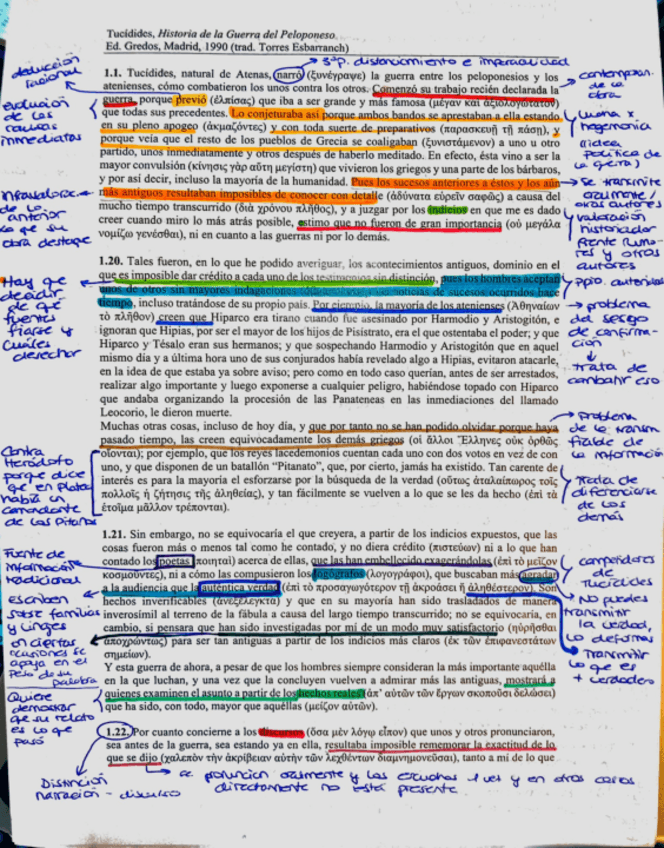 Tucídides, Historia de la Guerra del Peloponeso.
Ed. Gredos, Madrid, 1990 (trad. Torres Esbarranch)
3ªp. distanciamiento e imparcialidad
deducción
racional
evolución
de las
causas
inmediatas
1.1. Tucídides, natural de Atenas, narró (ξυνέγραψε) la guerra entre los peloponesios y los
atenienses, cómo combatieron los unos contra los otros. Comenzó su trabajo recién declarada la
guerra, porque previó (ἐλπίσας) que iba a ser grande y más famosa (μέγαν καὶ ἀξιολογώτατον)
que todas sus precedentes. Lo conjeturaba así porque ambos bandos se aprestaban a ella estando
en su pleno apogeo (ἀκμάζοντες) y con toda suerte de preparativos (παρασκευῇ τῇ πάσῃ), y
porque veía que el resto de los pueblos de Grecia se coaligaban (ξυνιστάμενον) a uno u otro
partido, unos inmediatamente y otros después de haberlo meditado. En efecto, ésta vino a ser la
mayor convulsión (κίνησις γὰρ αὕτη μεγίστη) que vivieron los griegos y una parte de los bárbaros,
y por así decir, incluso la mayoría de la humanidad. Pues los sucesos anteriores a éstos y los aún
más antiguos resultaban imposibles de conocer con detalle (ἀδύνατα εὑρεῖν σαφῶς) a causa del
mucho tiempo transcurrido (διὰ χρόνου πλῆθος), y a juzgar por los indicios en que me es dado
creer cuando miro lo más atrás posible, estimo que no fueron de gran importancia (οὐ μεγάλα
νομίζω γενέσθαι), ni en cuanto a las guerras ni por lo demás.
contemporan.
de la
obra
lucha x
hegemonía
(idea
política de
la guerra)
Se transmite
oralmente /
otros autores
valoración
historiador
frente rumo-
res y otros
autores
Infravalorac.
de lo
anterior
lo que su
obra destaque
1.20. Tales fueron, en lo que he podido averiguar, los acontecimientos antiguos, dominio en el
que es imposible dar crédito a cada uno de los testimonios sin distinción, pues los hombres aceptan
unos de otros sin mayores indagaciones noticias de sucesos ocurridos hace
tiempo, incluso tratándose de su propio país. Por ejemplo, la mayoría de los atenienses (Ἀθηναίων
τὸ πλῆθος) creen que Hiparco era tirano cuando fue asesinado por Harmodio y Aristogitón, e
ignoran que Hipias, por ser el mayor de los hijos de Pisístrato, era el que ostentaba el poder; y que
Hiparco y Tésalo eran sus hermanos; y que sospechando Harmodio y Aristogitón que en aquel
mismo día y a última hora uno de sus conjurados había revelado algo a Hipias, evitaron atacarle,
en la idea de que estaba ya sobre aviso; pero como en todo caso querían, antes de ser arrestados,
realizar algo importante y luego exponerse a cualquier peligro, habiéndose topado con Hiparco
que andaba organizando la procesión de las Panateneas en las inmediaciones del llamado
Leocorio, le dieron muerte.
Muchas otras cosas, incluso de hoy día, y que por tanto no se han podido olvidar porque haya
pasado tiempo, las creen equivocadamente los demás griegos (οἱ ἄλλοι Ἕλληνες οὐκ ὀρθῶς
οἴονται); por ejemplo, que los reyes lacedemonios cuentan cada uno con dos votos en vez de con
uno, y que disponen de un batallón “Pitanato”, que, por cierto, jamás ha existido. Tan carente de
interés es para la mayoría el esforzarse por la búsqueda de la verdad (οὕτως ἀταλαίπωρος τοῖς
πολλοῖς ἡ ζήτησις τῆς ἀληθείας), y tan fácilmente se vuelven a lo que se les da hecho (ἐπὶ τὰ
ἑτοῖμα μᾶλλον τρέπονται).
Hay que
decidir
de que
fuentes
fiarse y
cuáles
desechar
ppio. autoridad
problema
del sesgo
de confirma-
ción
trata de
combatir eso
Problema
de la transm
fiable de
la información
Trata de
diferenciarse
de los
demás
Contra
Heródoto
porque dice
que en Platea
había un
comandante
de los Pitanos
1.21. Sin embargo, no se equivocaría el que creyera, a partir de los indicios expuestos, que las
cosas fueron más o menos tal como he contado, y no diera crédito (πιστεύων) ni a lo que han
contado los poetas (ποιηταὶ) acerca de ellas, que las han embellecido exagerándolas (ἐπὶ τὸ μεῖζον
κοσμοῦντες), ni a cómo las compusieron los logógrafos (λογογράφοι), que buscaban más agradar
a la audiencia que la auténtica verdad (ἐπὶ τὸ προσαγωγότερον τῇ ἀκροάσει ἢ ἀληθέστερον). Son
hechos inverificables (ἀνεξέλεγκτα) y que en su mayoría han sido trasladados de manera
inverosímil al terreno de la fábula a causa del largo tiempo transcurrido; no se equivocaría, en
cambio, si pensara que han sido investigadas por mí de un modo muy satisfactorio (ηὑρῆσθαι
ἀποχρώντως) para ser tan antiguas a partir de los indicios más claros (ἐκ τῶν ἐπιφανεστάτων
σημείων).
Y esta guerra de ahora, a pesar de que los hombres siempre consideran la más importante aquélla
en la que luchan, y una vez que la concluyen vuelven a admirar más las antiguas, mostrará a
quienes examinen el asunto a partir de los hechos reales (ἀπ’ αὐτῶν τῶν ἔργων σκοποῦσι δηλώσει)
que ha sido, con todo, mayor que aquéllas (μεῖζον αὐτῶν).
Fuente de
información
tradicional
escriben
sobre familias
y linajes
en ciertas
ocasiones se
apoya en el
peso de su
palabra
Quiere
demostrar
que su relato
es lo que
pasó
competidores
de
Tucídides
No puedes
transmitir
la verdad,
lo deformas
Transmitir
lo que es
+ verdadero
1.22. Por cuanto concierne a los discursos (ὅσα μὲν λόγῳ εἶπον) que unos y otros pronunciaron,
sea antes de la guerra, sea estando ya en ella, resultaba imposible rememorar la exactitud de lo
que se dijo (χαλεπὸν τὴν ἀκρίβειαν αὐτὴν τῶν λεχθέντων διαμνημονεῦσαι), tanto a mí de lo que
Distinción
narración - discurso
se pronuncian oralmente y las escuchas 1 vez y en otros casos
directamente no está presente